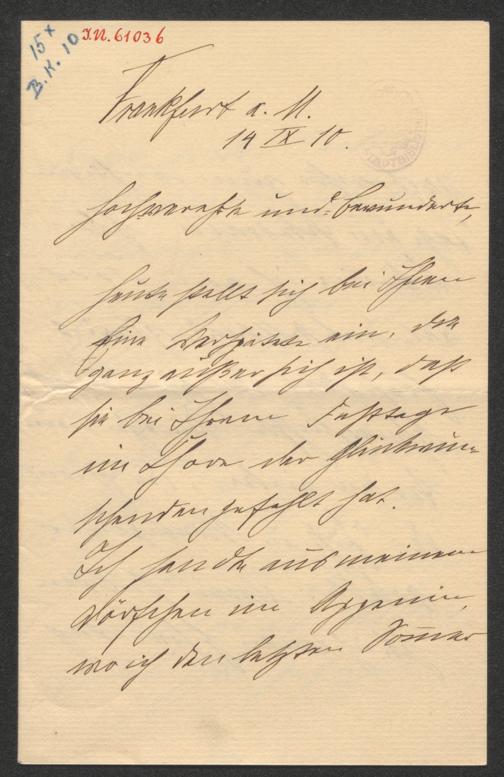 15x
B.K. 10
I.N. 61036
Frankfurt a. M.
14 IX 10.
Hochverehrte und Bewunderte,
heute stellt sich bei Ihnen
Eine Verspätete ein, die
ganz außer sich ist, daß
sie bei Ihrem Festtage
im Chore der Glückwün-
schenden gefehlt hat.
Ich sandte aus meinem
Dörfchen im Appenin,
wo ich den letzten Sommer